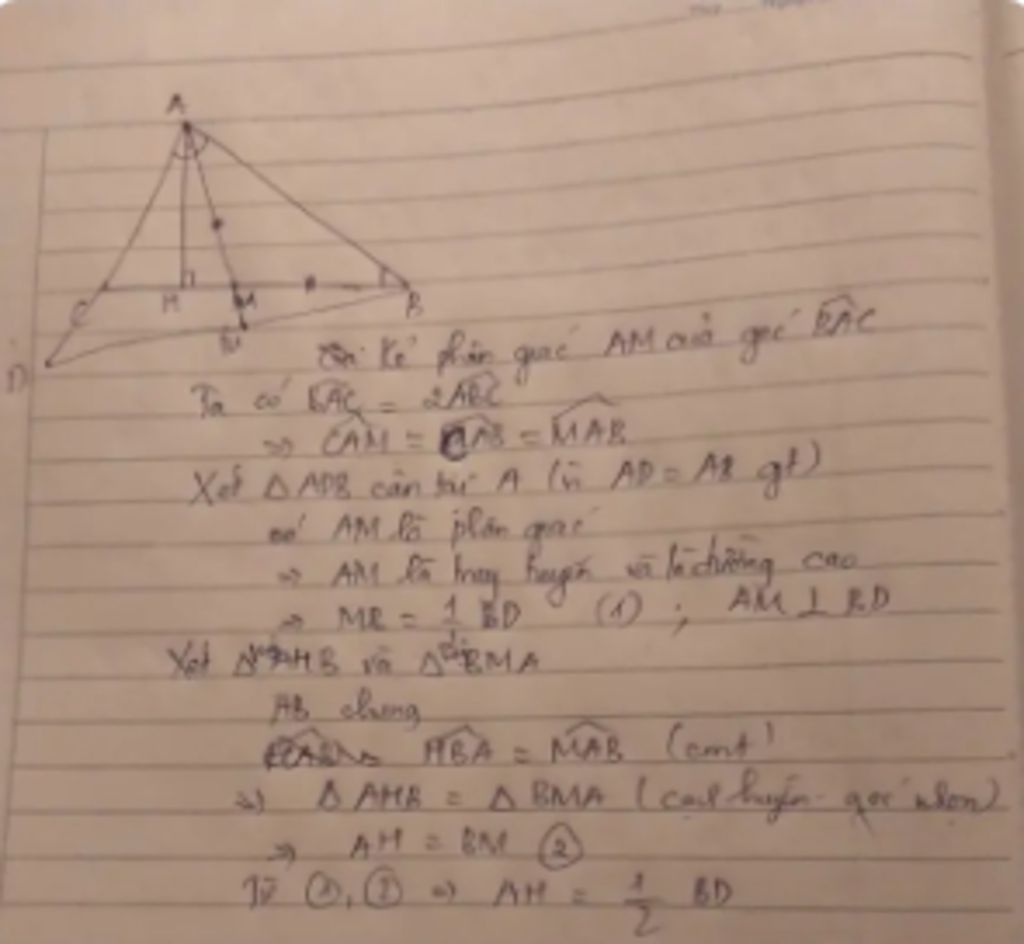 A
C H M B
D
Kẻ phân giác AM của góc BAC
Ta có BAC = 2ABC
=> CAM = CAB = MAB
Xét △ADB cân tại A (vì AD = AB gt)
có AM là phân giác
=> AM là trung tuyến và là đường cao
=> MB = 1/2 BD (1) ; AM ⊥ BD
Xét △ AHB và △ BMA
AB chung
HBA = MAB (cmt)
=> △ AHB = △ BMA (cạnh huyền - góc nhọn)
=> AH = BM ②
Từ ①, ② => AH = 1/2 BD